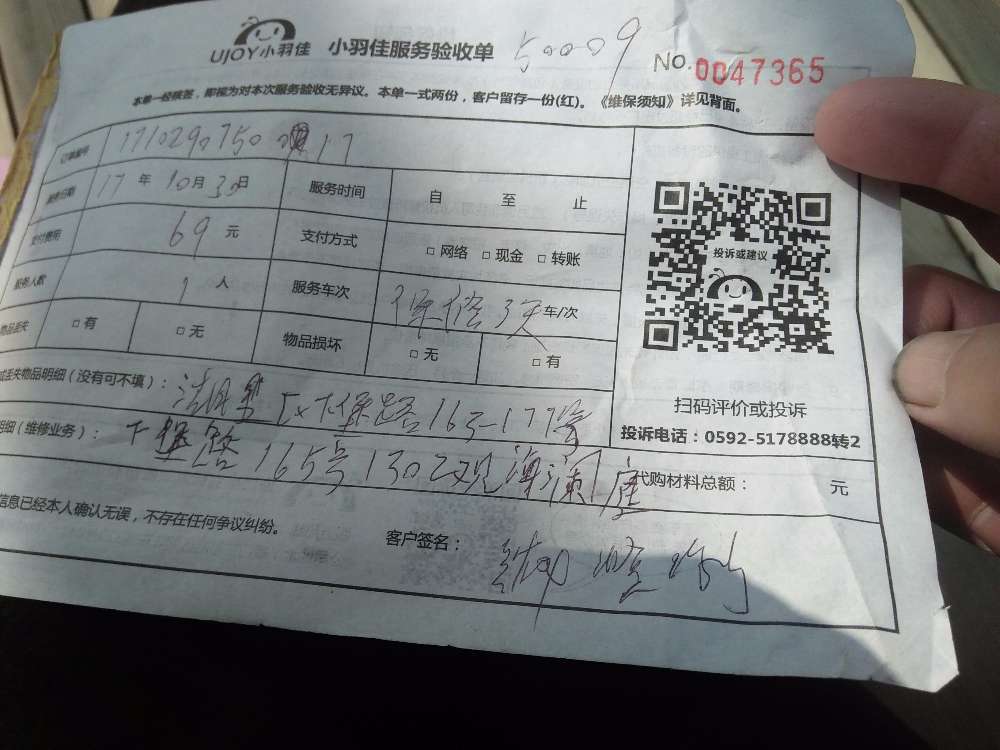 UJOY小羽佳 小羽佳服务验收单 50009 NO. 0047365
本单一经核签，即视为对本次服务验收无异议。本单一式两份，客户留存一份(红)。《维保须知》详见背面。
订单编号
服务日期 17 年 10月 30日 服务时间 自 至 止
支付费用 69 元 支付方式 □ 网络 □ 现金 □ 转账
服务人数 1 人 服务车次 保修3天 车/次
物品丢失 □ 有 □ 无 物品损坏 □ 无 □ 有
或丢失物品明细（没有可不填）： 163-177
明细（维修业务）： 路165号1302观海 代购材料总额： 元
信息已经本人确认无误，不存在任何争议纠纷。 客户签名：
投诉或建议
扫码评价或投诉
投诉电话：0592-5178888转2